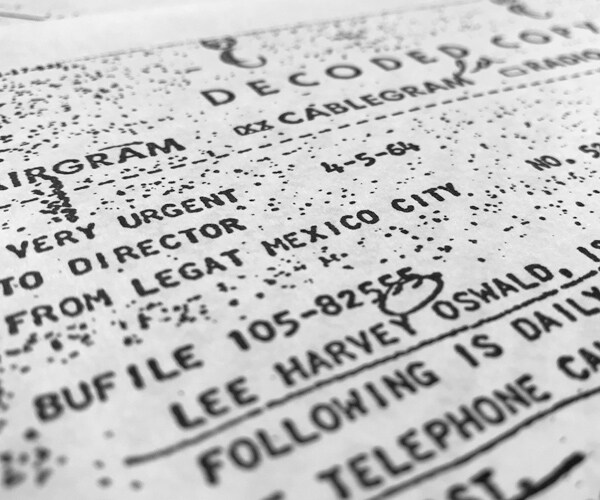 DECODED COPY
AIRGRAM CABLEGRAM RADIO
VERY URGENT 4-5-64
TO DIRECTOR NO.
FROM LEGAT MEXICO CITY
BUFILE 105-82555
LEE HARVEY OSWALD,
FOLLOWING IS DAILY
TELEPHONE